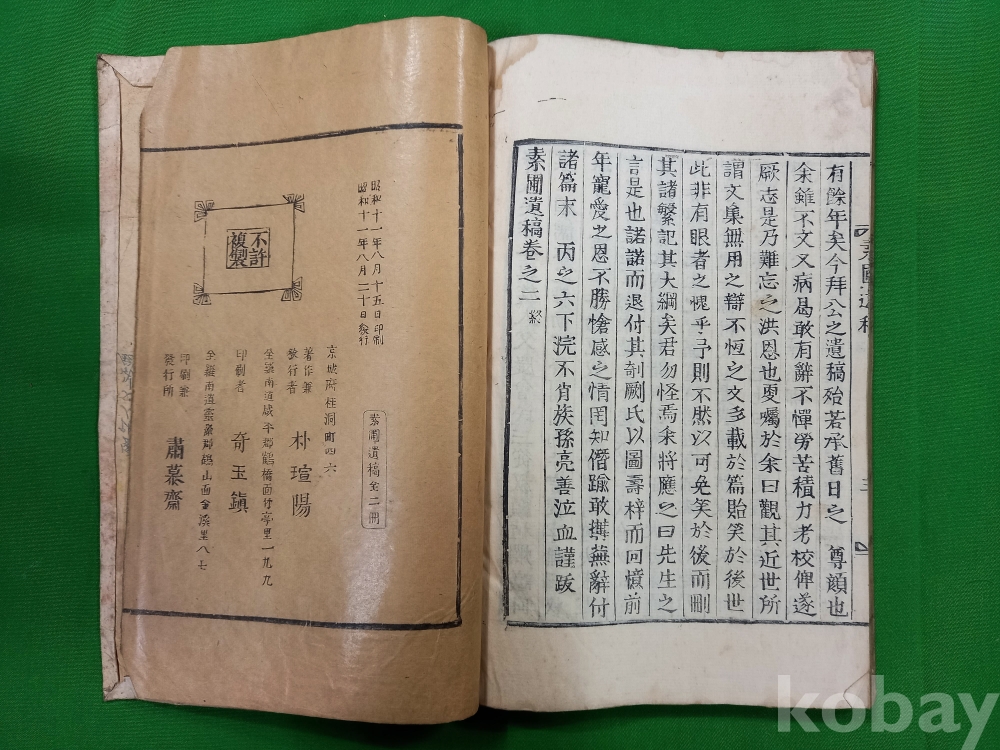 有餘年矣今拜公之遺稿殆若承舊日之 尊顔也
余雖不文又病曷敢有辭不憚勞苦積力考校俾遂
厥志是乃難忘之洪恩也更囑於余曰觀其近世所
謂文集無用之辯不恆之文多載於篇貽笑於後世
此非有眼者之愧乎予則不然汝可免笑於後而刪
其諸繁記其大綱矣君勿怪焉余將應之曰先生之
言是也諾諾而退付其剞劂氏以圖壽梓而回憶前
年寵愛之恩不勝愴感之情罔知僭踰敢搆蕪辭付
諸篇末 丙之六下浣不肖族孫亮善泣血謹跋
素圃遺稿卷之二 終
素圃遺稿全二冊
京城府桂洞町四六
著作兼
發行者 朴瑄陽
全羅南道咸平郡鶴橋面竹亭里一九九
印刷者 奇玉鎭
全羅南道靈巖郡 山面金溪里八七
印刷兼
發行所 肅慕齋
昭和十一年八月十五日印刷
昭和十一年八月二十日發行
不許
複製
kobay